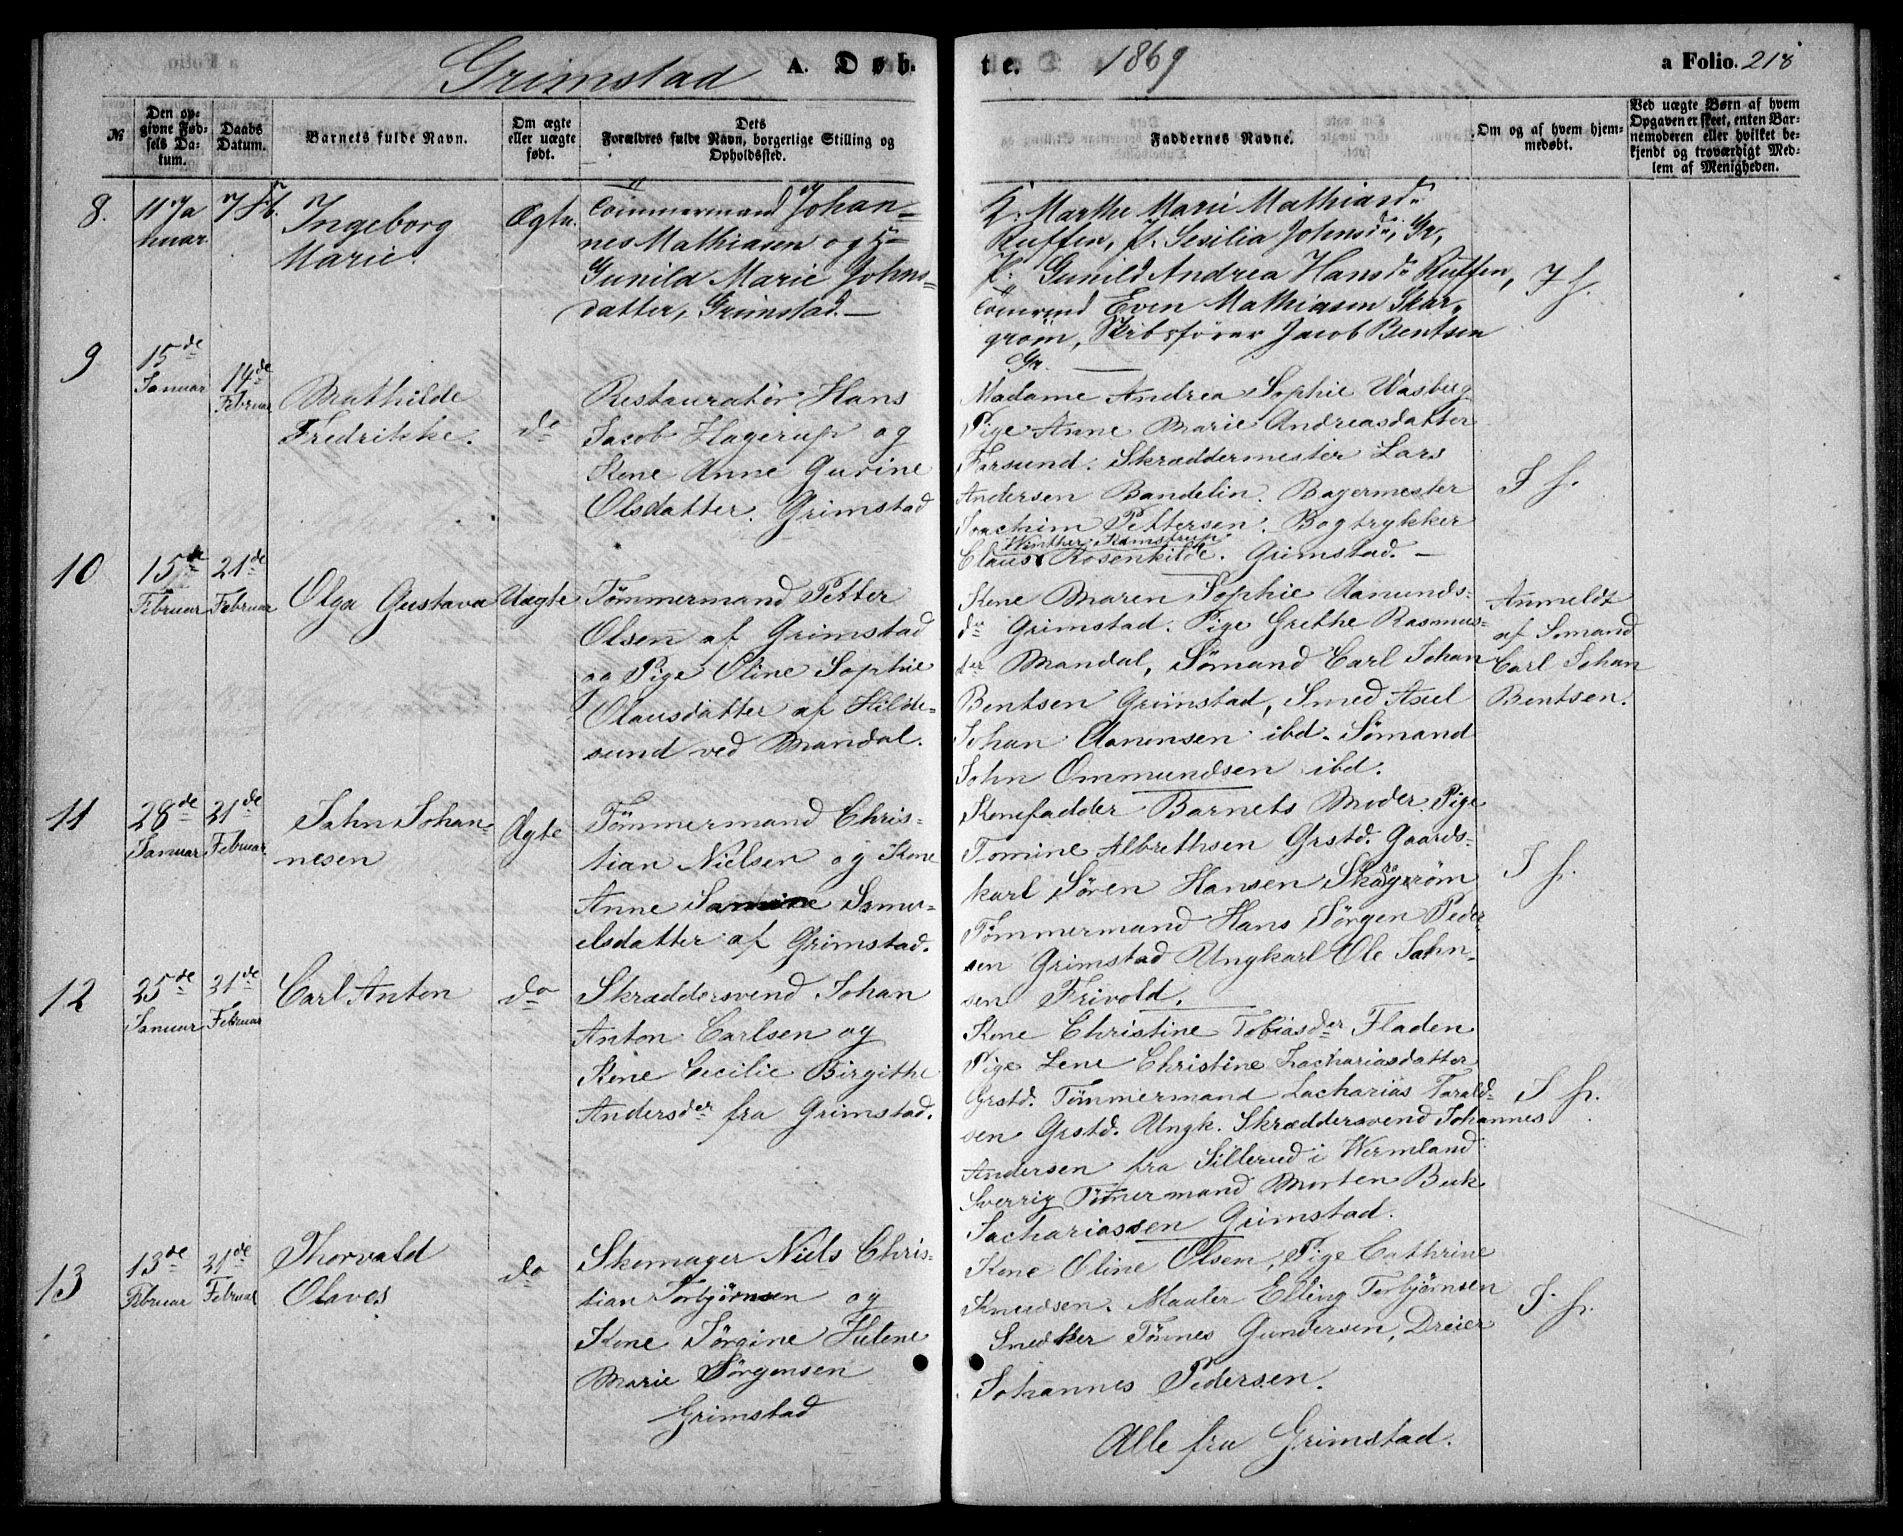 Grimstad A. Døb-
te. 1869 a Folio. 218
№
Den op-
givne Fød-
sels Da-
tum.
Daabs
Datum.
Barnets fulde Navn.
Om ægte
eller uægte
født.
Dets
Forældres fulde Navn, borgerlige Stilling og
Opholdssted.
Faddernes Navne.
Om og af hvem hjem-
medøbt.
Ved uægte Børn af hvem
Opgaven er skeet, enten Bar-
nemoderen eller hvilket be-
kjendt og troværdigt Med-
lem af Menigheden.
8.
11 Ja
nuar
7 Feb.
Ingeborg
Marie
Ægte.
Tømmermand Johan-
nes Mathiasen og K-
Gunild Marie Johns-
datter, Grimstad. —
K. Marthe Marie Mathiasd.
Ruffen, P. Sesilia Johnsd., Gr,
P: Gunild Andrea Hansd. Ruffen,
Tømmd Even Mathiasen Skar-
grøm, Skibsfører Jacob Bentsen
Gr.
I f.
9
15de
Januar
14de
Februar
Mathilde
Fredrikke.
do
Restauratør Hans
Jacob Hagerup og
Kone Anne Gurine
Olsdatter. Grimstad
Madame Andrea Sophie Aasberg
Pige Anne Marie Andreasdatter
Farsund. Skræddermester Lars
Andersen Bandelin. Bagermester
Joachim Pettersen. Bogtrykker
Winther Kamstrup
Claus Rosenkilde. Grimstad. —
I f.
10
15de
Februar
21de
Februar
Olga Gustava
Uægte
Tømmermand Petter
Olsen af Grimstad
og Pige Oline Sophie
Olausdatter af Hilde-
sund ved Mandal.
Kone Maren Sophie Aamunds-
dr Grimstad. Pige Grethe Rasmus-
der Mandal, Sømand Carl Johan
Bentsen Grimstad, Smed Axel
Johan Aanensen ibd. Sømand
John Ommundsen ibd.
Anmeldt
af Sømand
Carl Johan
Bentsen.
11
28de
Januar
21de
Februar
Jahn Johan-
nesen
Ægte
Tømmermand Chris-
tian Nielsen og Kone
Anne Samu-
elsdatter af Grimstad.
Konefadder Barnets Moder. Pige
Tomine Albrethsen Grstd. Gaards-
karl Søren Hansen Skargrøm
Tømmermand Hans Jørgen Peder-
sen Grimstad Ungkarl Ole Jahn-
sen Frivold.
I f.
12
25de
Januar
21de
Februar
Carl Anton
do
Skræddersvend Johan
Anton Carlsen og
Kone Cecilie Birgithe
Andersder fra Grimstad.
Kone Christine Tobiasder Fladen
Pige Lene Christine Zachariasdatter
Grstd. Tømmermand Zacharias Tarald-
sen Grstd. Ungk. Skræddersvend Johannes
Andersen fra Sillerud i Wermland
Sverrig Tømermand Morten Beck
Sachariassen Grimstad.
I f.
13
13de
Februar
21de
Februar
Thorvald
Olaves
do
Skomager Niels Chris-
tian Torbjørnsen og
Kone Jørgine Helene
Marie Jørgensen
Grimstad
Kone Oline Olsen, Pige Cathrine
Knudsen. Maaler Elling Torbjørnsen
Snedker Tønnes Gundersen, Dreier
Johannes Pedersen.
Alle fra Grimstad.
I. f.